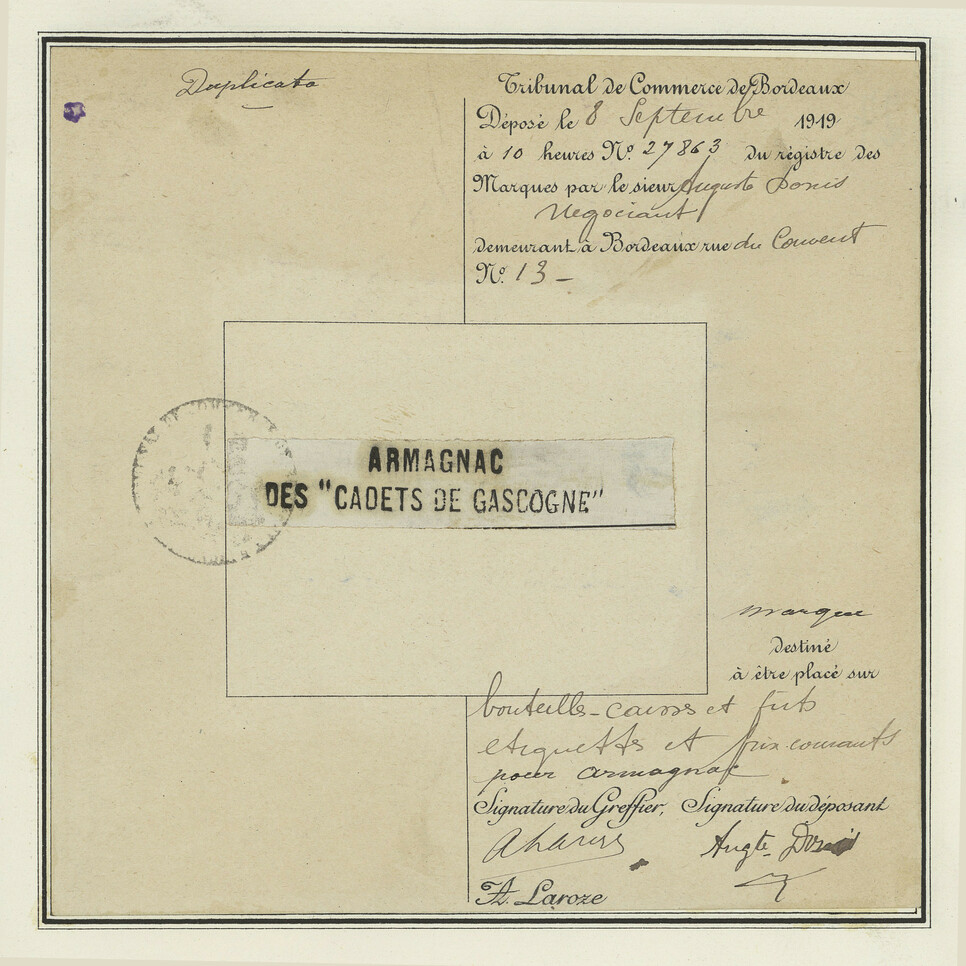 Duplicata
Tribunal de Commerce de Bordeaux
Déposé le 8 Septembre 1919
à 10 heures N° 27863 du régistre des
Marques par le sieur Auguste Donis
Négociant
demeurant à Bordeaux rue du Couvent
N° 13 _
ARMAGNAC
DES "CADETS DE GASCOGNE"
marque
destiné
à être placé sur
bouteilles - caisses et futs
etiquettes et prix-courants
pour armagnac
Signature du Greffier, Signature du déposant
Augte Donis
Laroze